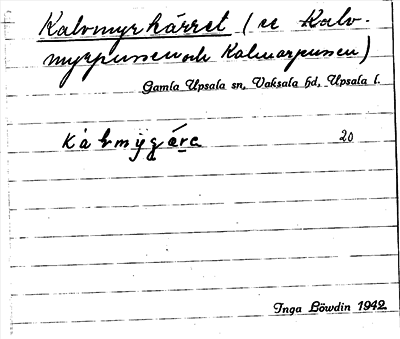 Kalvmyrkärret (se Kalv-
myrpussen och Kalvarpussen)
Gamla Upsala sn, Vaksala hd, Upsala l.
20
Inga Löwdin 1942.